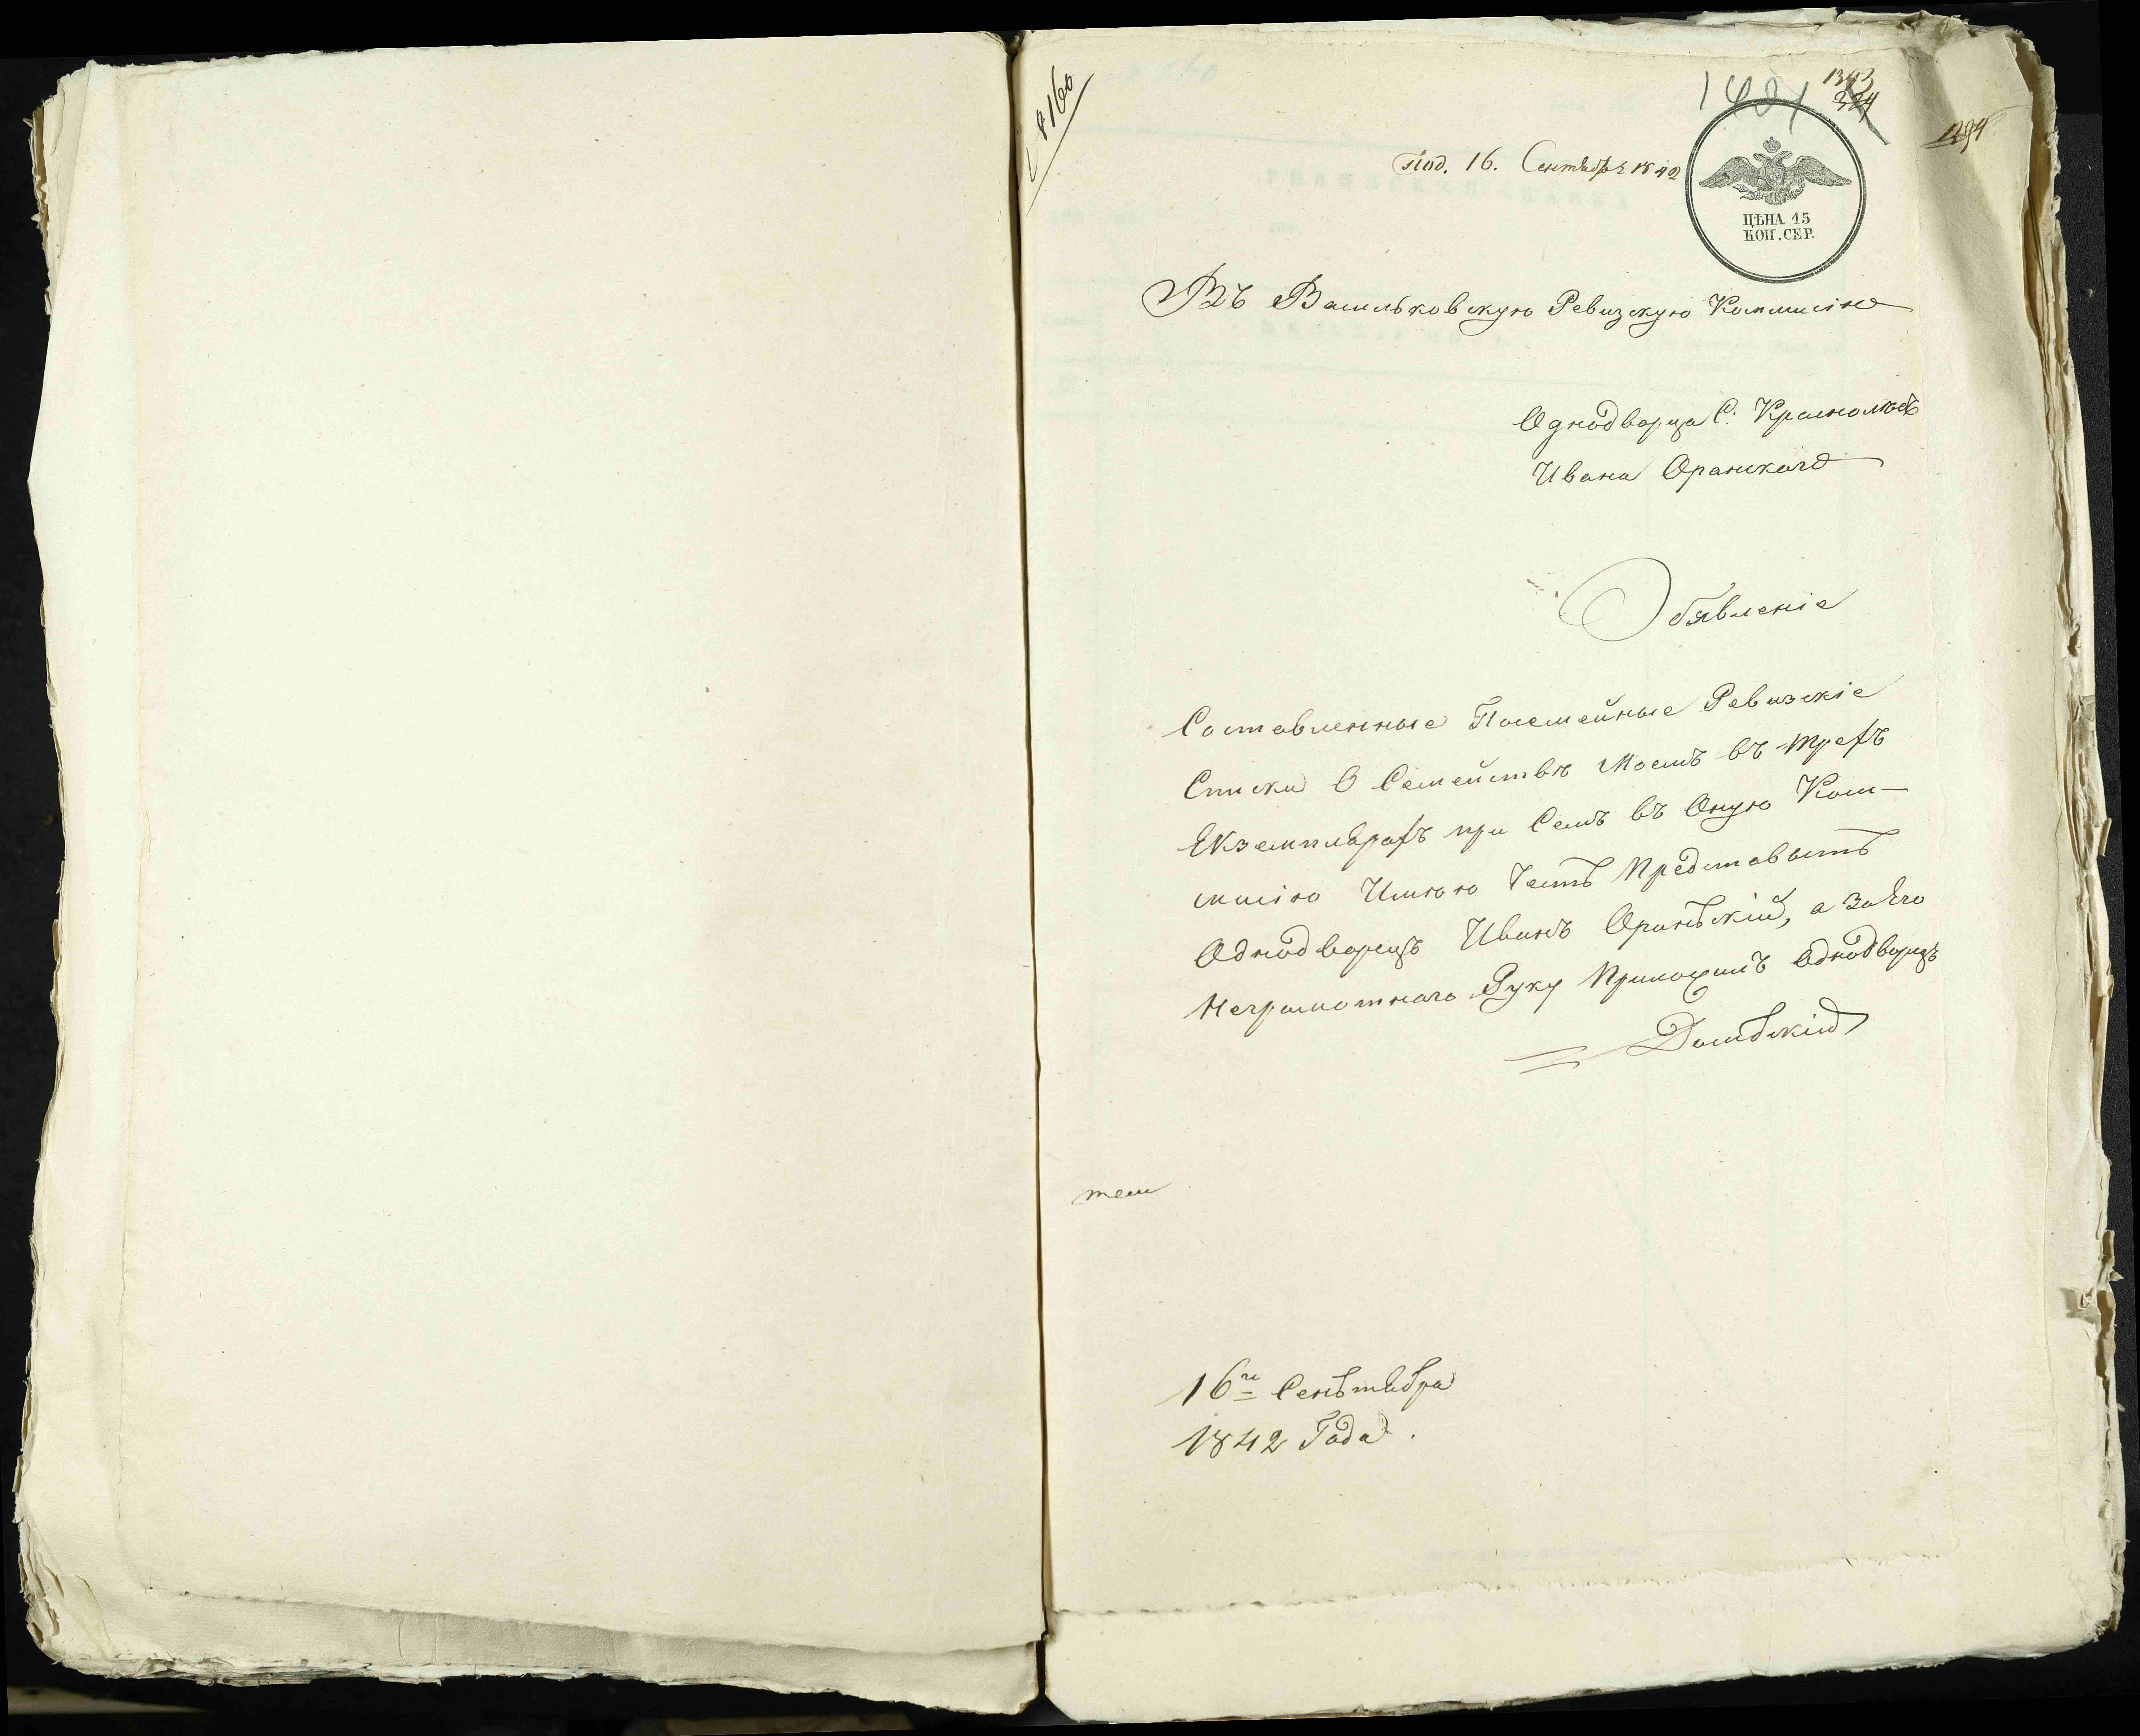 № 8160
1401
1343
324
1294
Под. 16. Сентября 1842
ЦѢНА 15
КОП. СЕР.
Въ Васильковскую Ревизскую Коммисію
Однодворца С. Краснолѣсъ
Ивана Оранскаго
Обявленіе
Составленные Посемейные Ревизскіе
Списки О Семействѣ Моемъ въ трехъ
Екземплярахъ при Семъ въ Оную Ком-
мисію Имѣю Честь Представить
Однодворецъ Иванъ Ораньскій, а За Его
Неграмотнаго Руку Приложилъ Однодворецъ
Домбскій
16го Сеньтября
1842 Года.